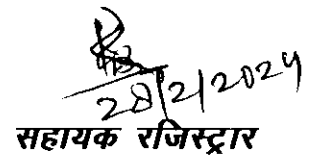 28/2/2024
सहायक रजिस्ट्रार